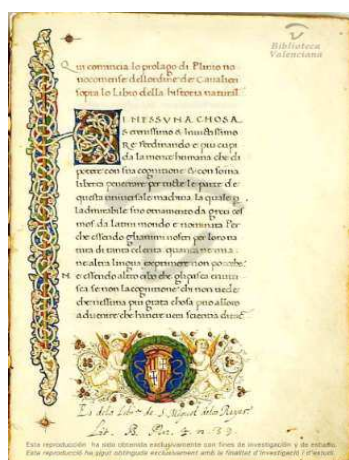 Biblioteca
Valenciana
Qui comincia lo prologo di Plinio no
sopra lo Libro della historia natural
I NESSUNA CHOSA
Serenissimo & Invictissimo
Re ferdinando e piu cupi
da la mente humana che di
potere con sua cognitione & con somma
libera penetrare per tutte le parte de
questa universale machina la quale p
ladmirabile suo ornamento da greci cos
mos da latini mondo e nominata Per
che essendo glhuomini nostri per loro na
tura di tanta celerita quanta ne huma
na altra lingua exprimere non potrebbe
e essendo altro cibo che gli pasca e nutris
sca se non la cognitione chi non vede
che nessuna piu grata chosa puo alloro
advenire che havere vera scientia di
Es de la Libr.ª de S. Miguel de los Reyes
Esta reproducción ha sido obtenida exclusivamente con fines de investigación y de estudio.
Esta reproducció ha sigut obtinguda exclusivament amb la finalitat d'investigació i d'estudi.